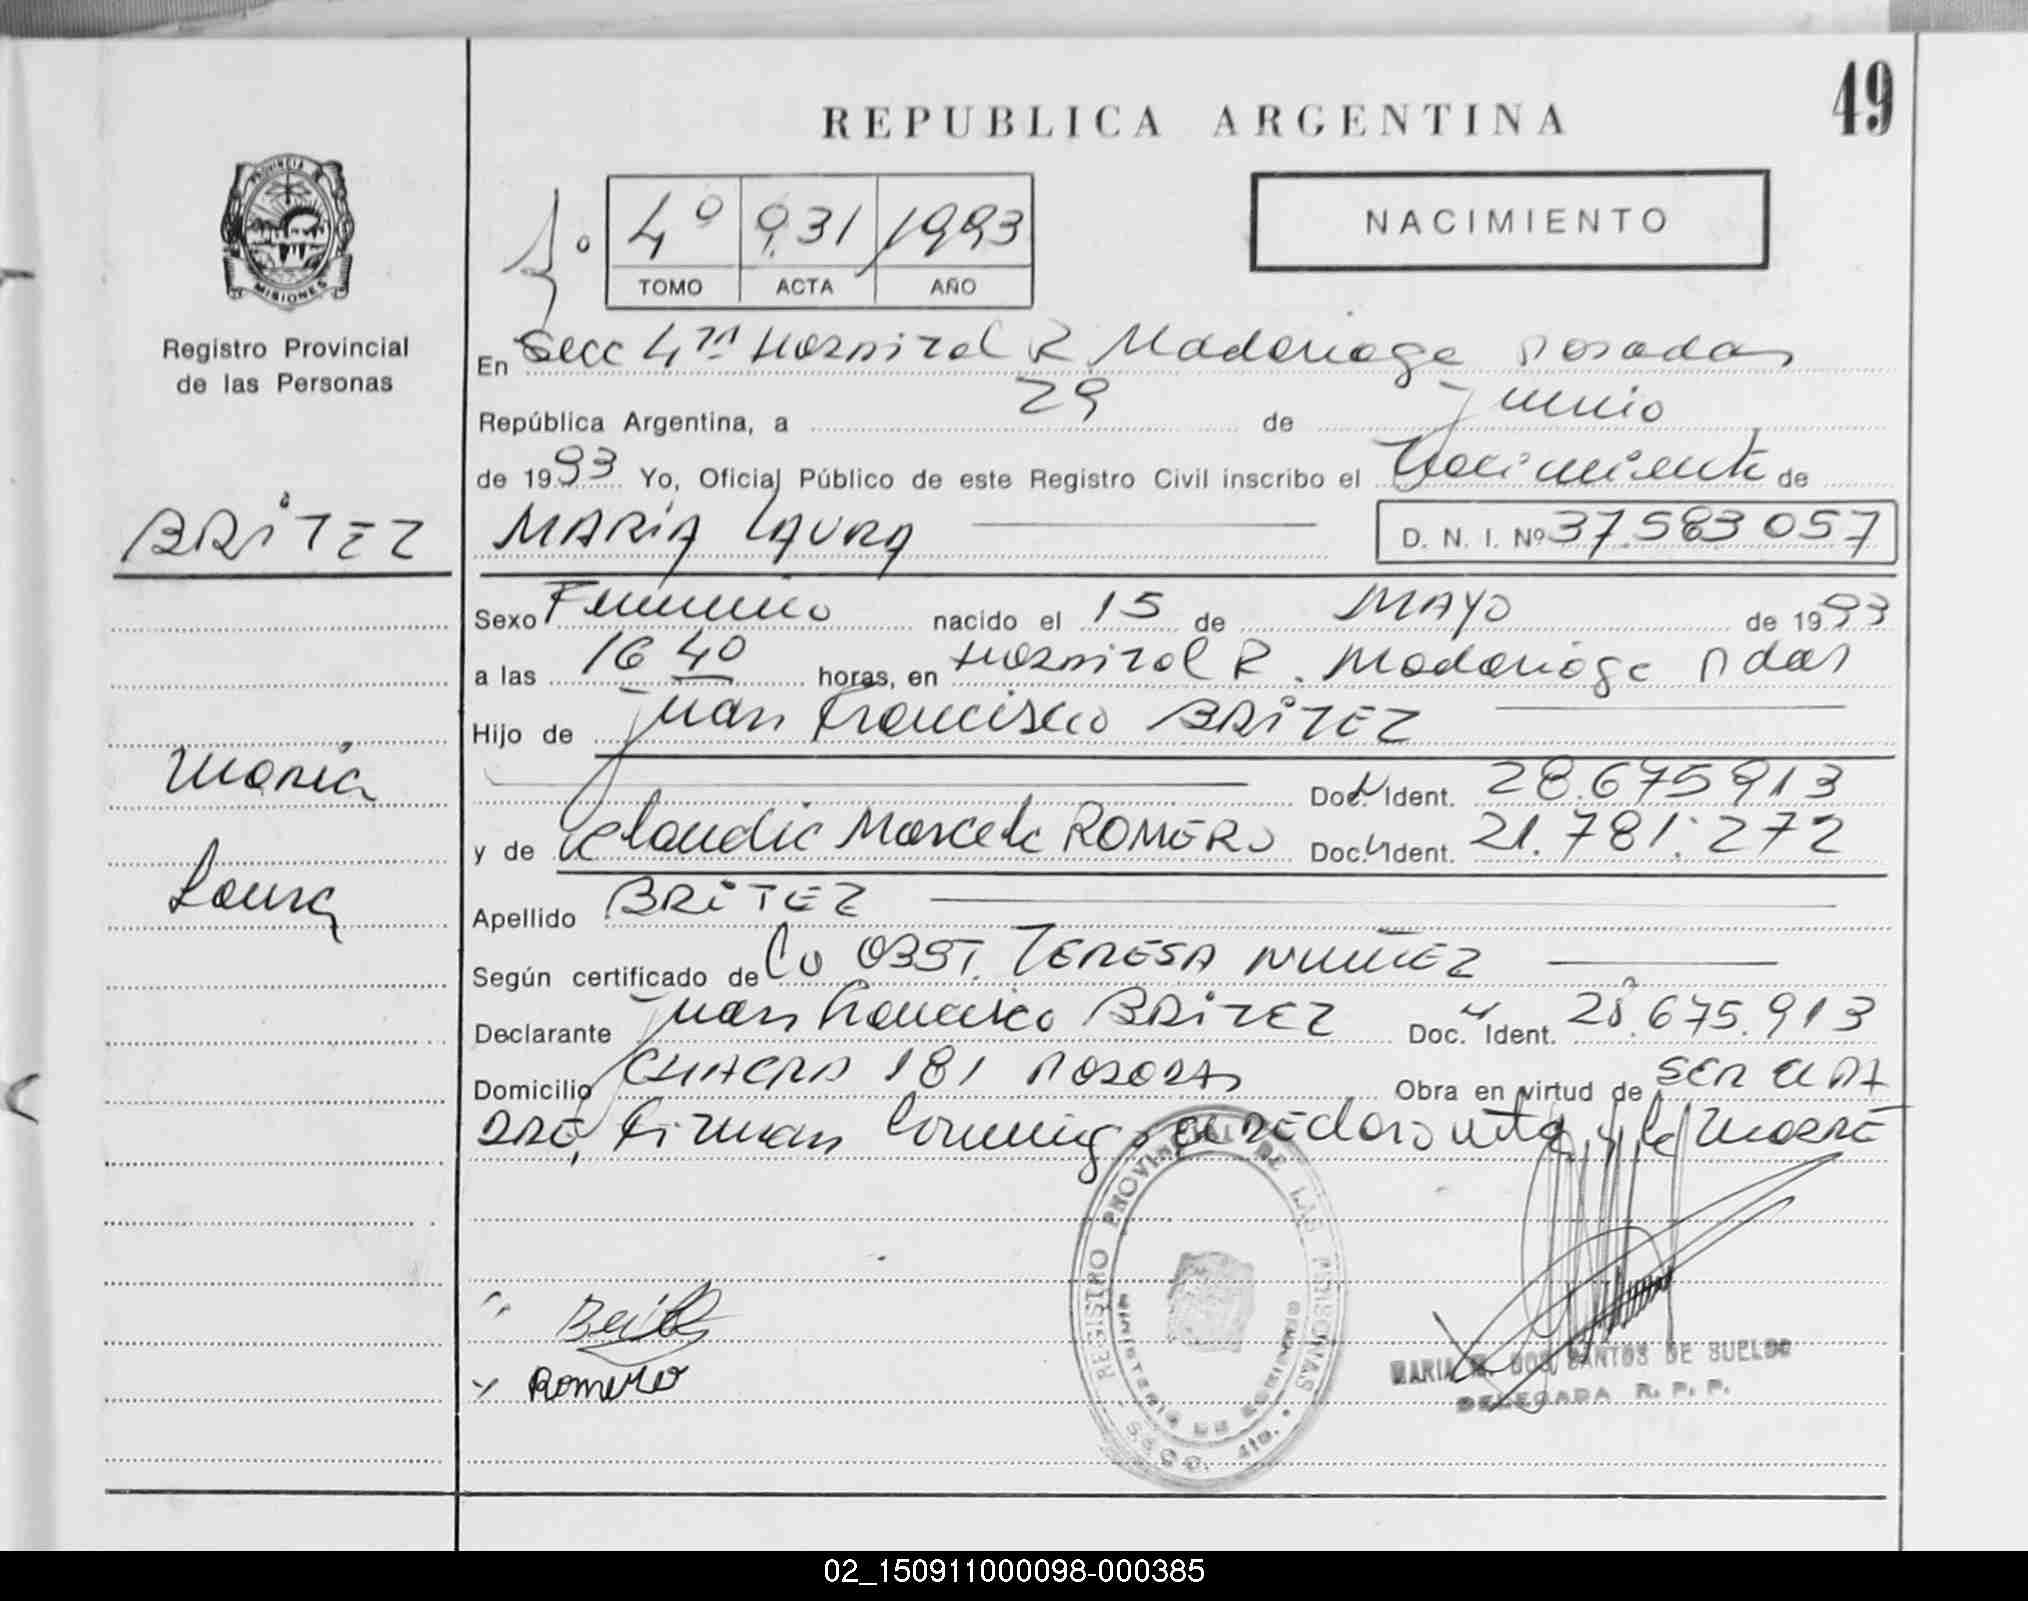 49
REPUBLICA ARGENTINA
PROVINCIA DE
MISIONES
Registro Provincial
de las Personas
1º
4º 931 1993
TOMO ACTA AÑO
NACIMIENTO
En Secc 4ta Hospital R Madariaga Posadas
República Argentina, a 29 de Junio
de 1993 Yo, Oficial Público de este Registro Civil inscribo el Nacimiento de
BRiTEZ
MARiA LAURA D. N. I. Nº 37.583 057
Sexo Femenino nacido el 15 de MAYO de 1993
a las 16 40 horas, en Hospital R. Madariaga Pdas
Hijo de Juan Francisco BRiTEZ
Maria
Doc. Ident. 28.675 913
y de Claudia Marcela ROMERO Doc. Ident. 21.781.272
Laura
Apellido BRiTEZ
Según certificado de La OBST. TERESA NUÑEZ
Declarante Juan Francisco BRiTEZ Doc. Ident. 28.675.913
Domicilio CHACRA 181 POSADAS Obra en virtud de SER El PA
DRE, Firman el Declarante y la MADRE
REGISTRO PROVINCIAL DE LAS PERSONAS
MINISTERIO DE GOBIERNO
Romero
MARIA DOS SANTOS DE SUELDO
DELEGADA R. P. P.
02_150911000098-000385